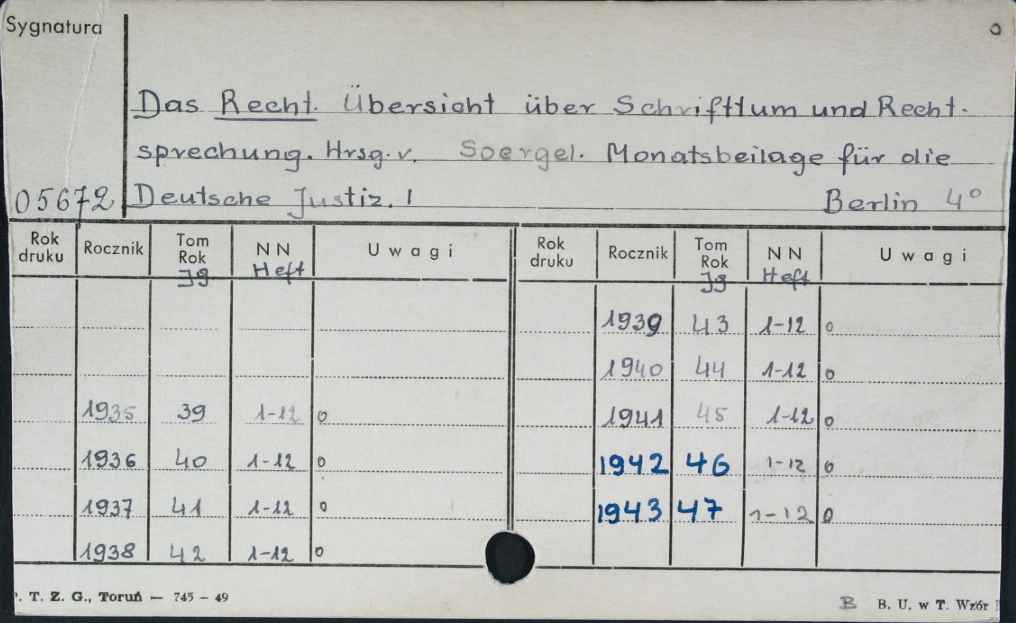 Sygnatura o
Das Recht. Übersicht über Schrifttum und Recht-
sprechung. Hrsg. v. Soergel. Monatsbeilage für die
05672 Deutsche Justiz. 1 Berlin 4°
Rok druku Rocznik Tom Rok Jg NN Heft Uwagi Rok druku Rocznik Tom Rok Jg NN Heft Uwagi
1939 43 1-12 o
1940 44 1-12 o
1935 39 1-12 o 1941 45 1-12 o
1936 40 1-12 o 1942 46 1-12 o
1937 41 1-12 o 1943 47 1-12 0
1938 42 1-12 o
. T. Z. G., Toruń — 745 – 49 B B. U. w T. Wzór